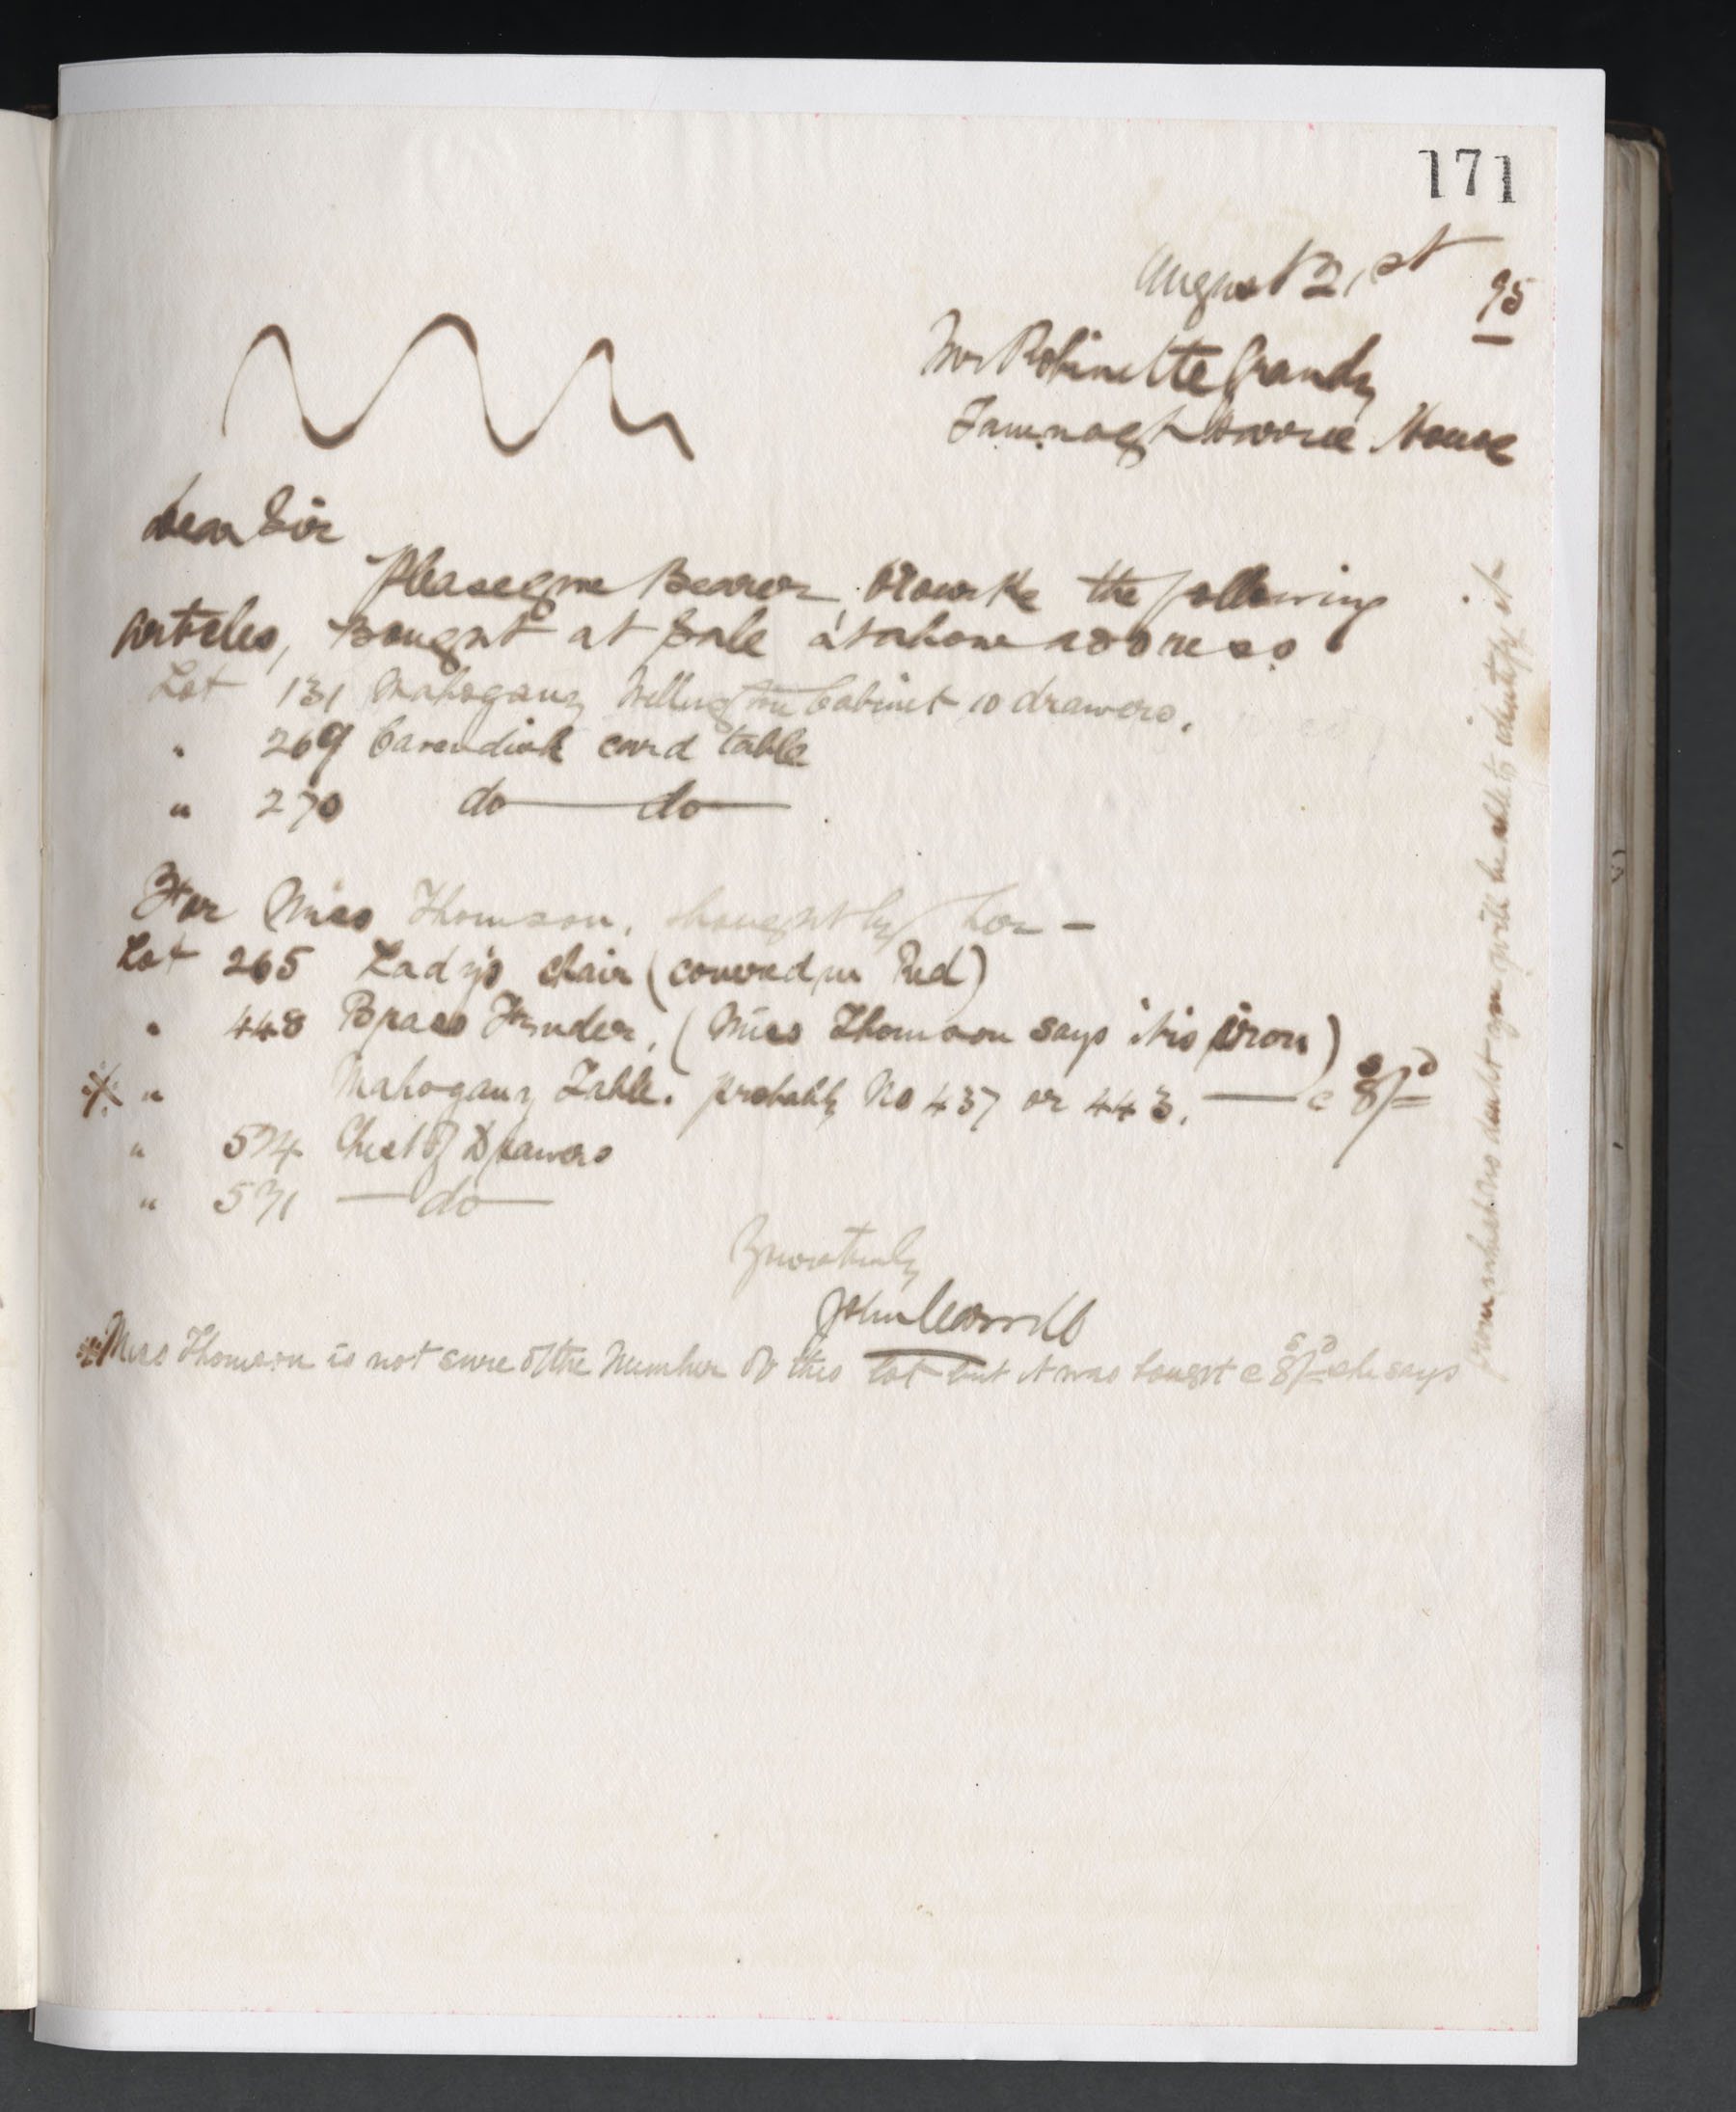 171
August 21st 95
Mr Robinette Grandy
Tamnagh House
Dear Sir
Please give Bearer O'Rourke the following
articles, Bought at Sale at above address
Lot 131 Mahogany Wellington Cabinet 10 drawers.
" 269 Cavendish card table
" 270 do do
For Miss Thomson, bought by her -
Lot 265 Lady's chair (covered in Red)
" 448 Brass Fender, (Miss Thomson says it is iron)
※ " Mahogany Table. probably No 437 or 443. — @ 8s/=d
" 574 Chest of Drawers
" 571 — do —
Yours truly
John
※ Miss Thomson is not sure of the Number of this lot but it was bought @ 8s/=d she says
from what and no doubt you will be able to identify it